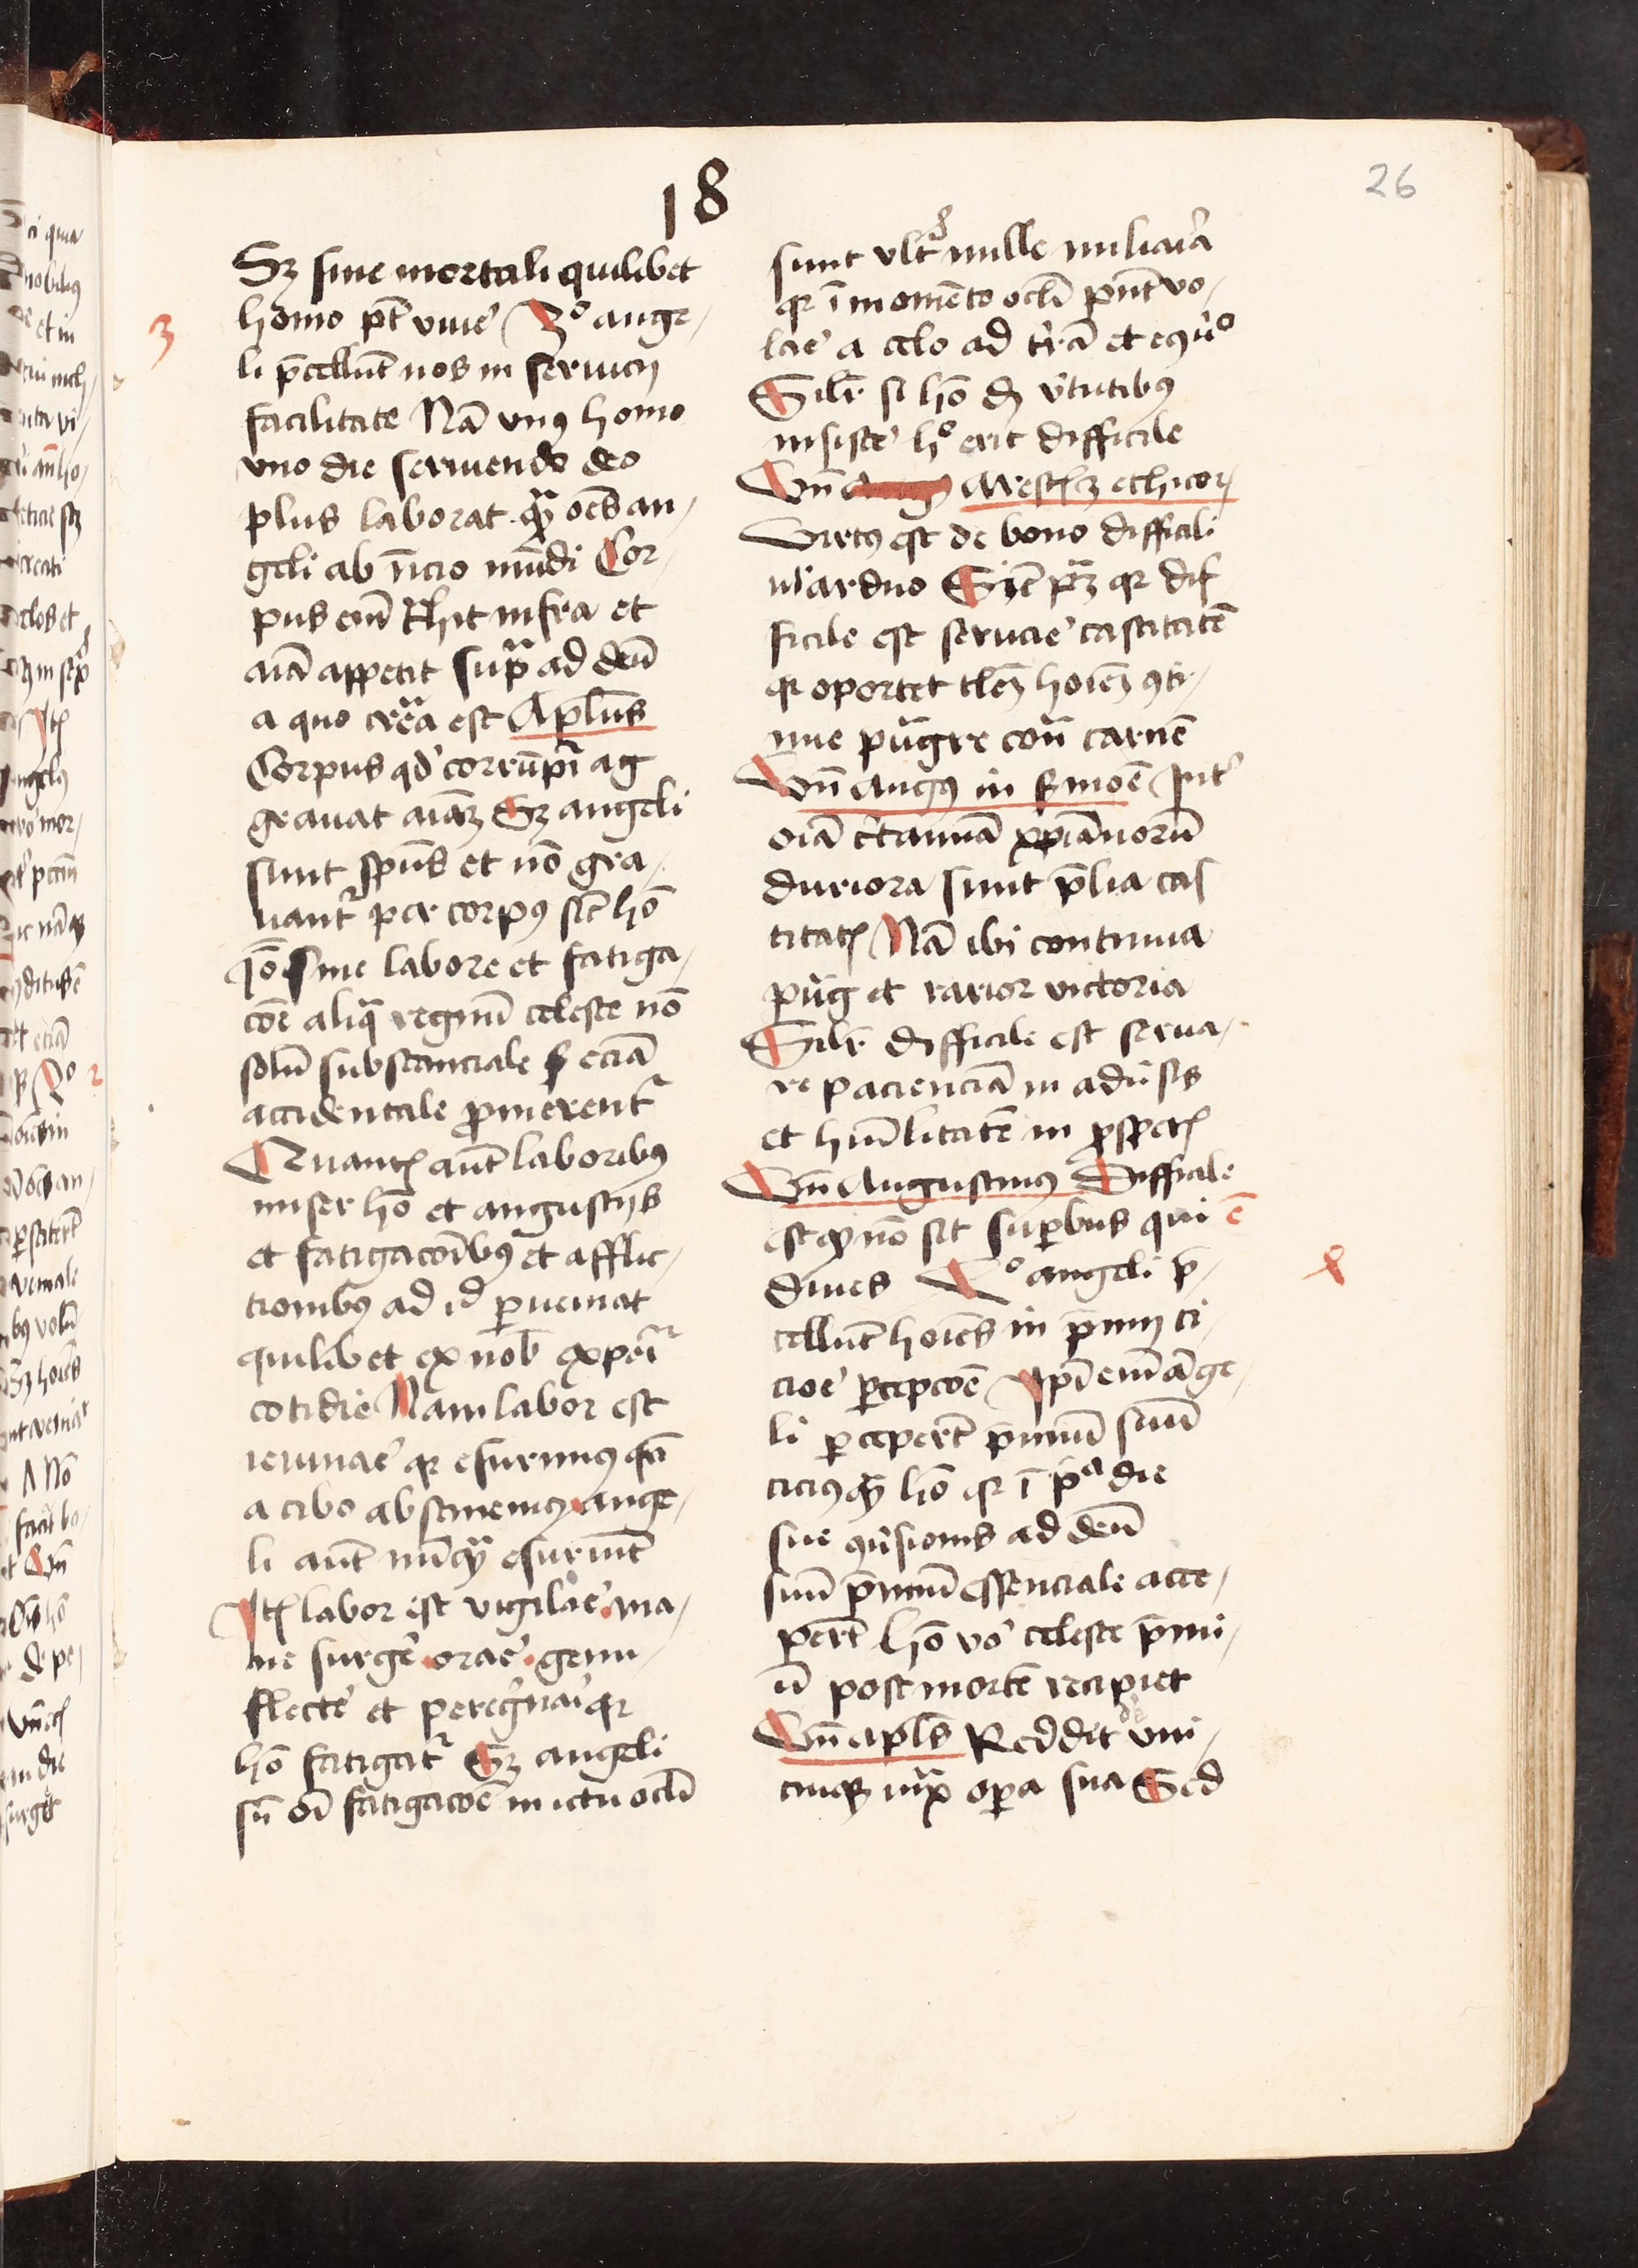 18
26
Sꝫ sine mortali quilibet
homo pt̄ viuē 3º ange/
3
li p̄cellūt nos in seruicij
facilitate Nā vnꝰ homo
vno die seruiendo deo
plus laborat qͣꝫ oēs an/
geli ab īicio mūdi Cor
pus eni̅ t̄hit infra et
aiā appetit supͣ ad deū
a quo creͣta est Aplūs
Corpus qd' corrūpiͭ ag
grauat aiāꝫ Sꝫ angeli
sunt spūs et nō gra/
uantᷣ per corpꝰ sic̄ hō
Iō sine labore et fatiga/
cōe aliqͣ regnū celeste nō
solū substanciale sꝫ eciā
accidentale ꝓmerentᷣ
Quantꝭ aūt laboribꝰ
miser hō et angustijs
et fatigacōibꝰ et afflic/
tionibꝰ ad id ꝑueniat
quilibet ex nob̄ exꝑitᷣ
cotidie Nam labor est
ieiunar̄ qꝛ esurimꝰ qn̄
a cibo abstinemꝰ ange/
li aūt nūqͣꝫ esuriūt
Itꝭ labor est vigilar̄ ma/
ne surger̄ orar̄ genu/
flecter̄ et peregͥnari qꝛ
hō fatigatᷣ Sꝫ angeli
sn̄ oī fatigacōe in ictu oclī
sunt vltͣ mille miliaria
qꝛ ī momēto oclī pn̄t vo/
lar̄ a celo ad trā et eꝯuͦ
Silr̄ si hō dꝫ v̓tutibꝰ
insister̄ hº erit difficile
Vn̄ arestꝭꝫ ethicoꝝ
Virtꝰ est de bono difficili
arduo pꝫ qꝛ dif
ficile est seruar̄ castitatē
qꝛ oportet tlēꝫ hoiēꝫ ꝯti/
nue pūgre con̄ carnē
Vn̄ augꝰ in ẜmōe Int̓
oīa c̓tamīa xp̄iānorū
duriora sunt p̄lia cas
titatꝭ Nā ibi continua
pūg et rarior victoria
Silr̄ difficile est serua/
re pacienciā in adu̓sis
et humilitatē in ꝓsperꝭ
Vn̄ Augustinus Difficile
est qꝫ nō sit suꝑbus qui ē
diues 4º angeli p̄/
4
cellūt hoīes in p̄mij ci/
ciōe ꝑcepcōe Ip̄i eni̅ ange/
li ꝑceperūt p̄miū suū
ciciꝰ qͣꝫ hō qꝛ ī pͣ die
sue ꝯu̓sionis ad deū
suū p̄miū essenciale acce/
perūt hō vº celeste p̄mi/
ū post mortē recipiet
Vn̄ apl̄s Reddet deꝰ vni/
cuiqꝫ iuxͣ oꝑa sua Sed